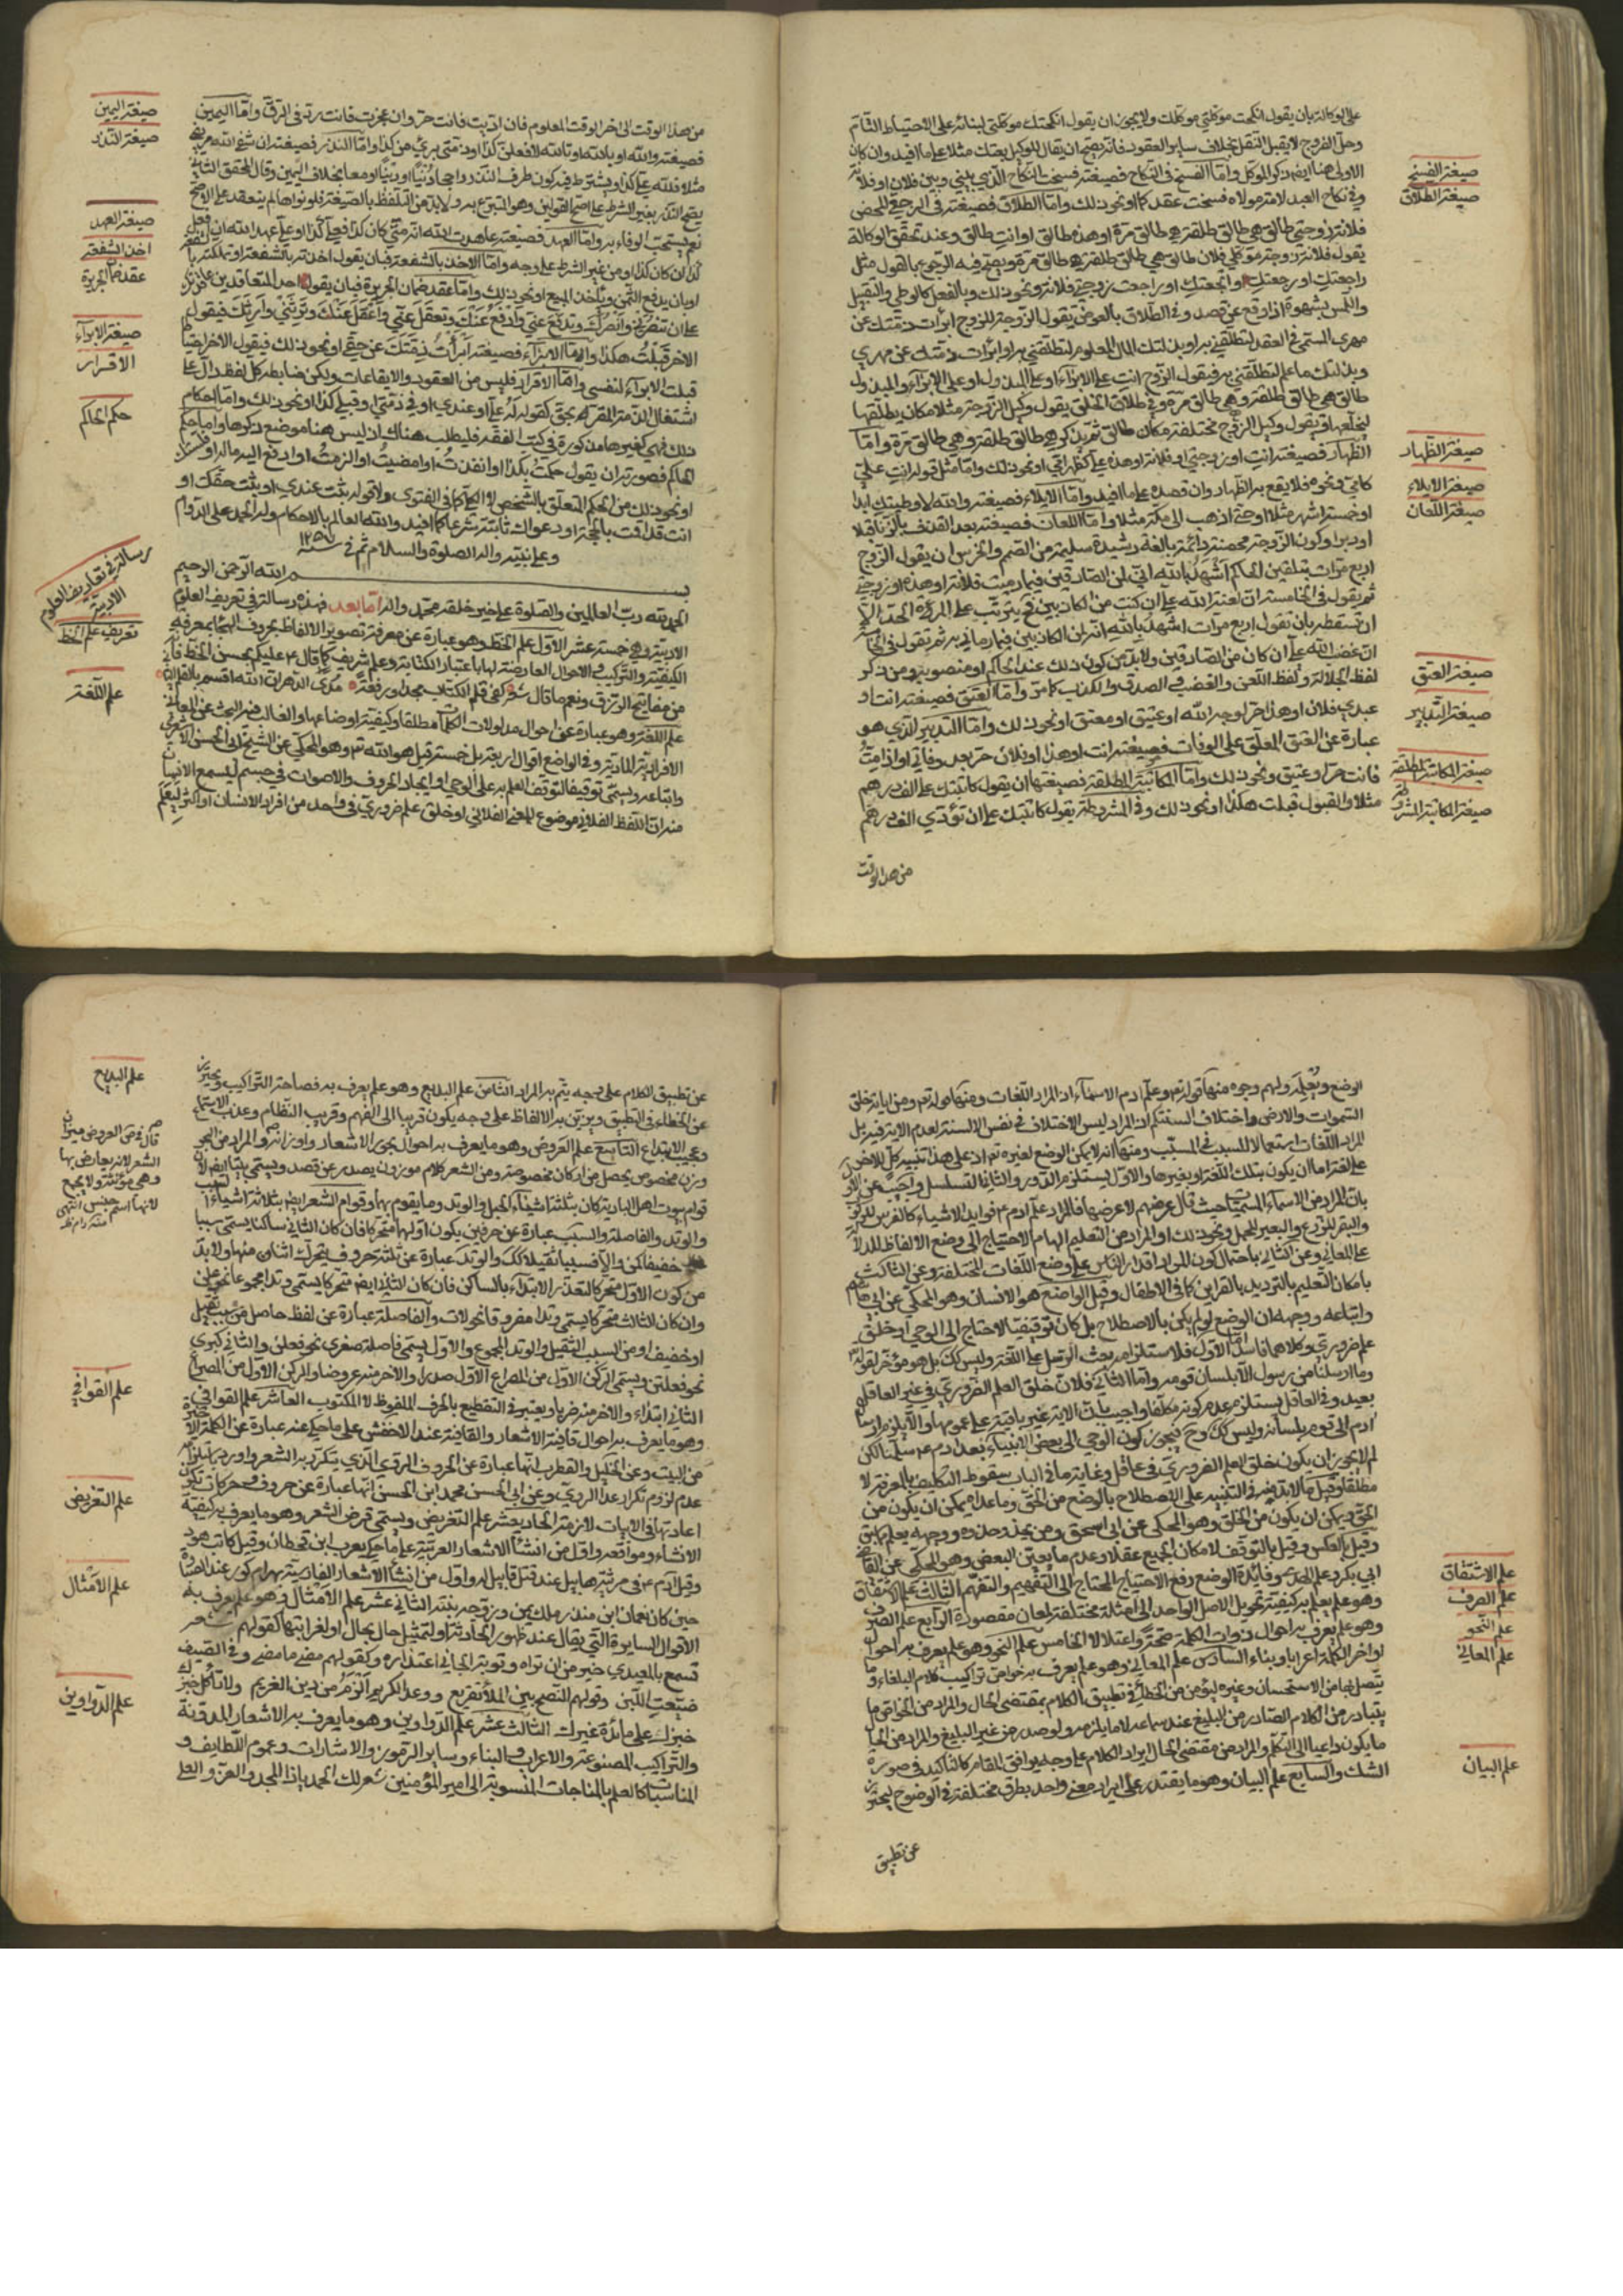 على الوكالة بان يقول انكحت موكلتي موكلك ولا يجوز ان يقول انكحتك موكلتي لبنائه على الاحتياط التام
وحل الفروج لا يقبل النقل بخلاف ساير العقود فانه يصح ان يقال للوكيل بعتك مثلا على ما افيد وان كان
الاولى هنا ايضا ذكر الموكل واما الفسخ في النكاح فصيغته فسخت النكاح الذي بيني وبين فلان او فلانة
وفي نكاح العبد لامة مولاه فسخت عقدكما او نحو ذلك واما الطلاق فصيغته في الرجعي المحض
فلانة زوجتي طالق هي طالق طلقة هي طالق مرة او هذه طالق او انت طالق وعند تحقق الوكالة
يقول فلانة زوجة موكلي فلان طالق هي طالق طلقة هي طالق مرة ويصح فيه الرجوع بالقول مثل
راجعتك او رجعتك او ارتجعتك او راجعت زوجتي فلانة ونحو ذلك وبالفعل كالوطي والتقبيل
واللمس بشهوة اذا وقع عن قصد وفي الطلاق بالعوض يقول الزوجة للزوج ابرأت ذمتك عن
مهري المسمى في العقد لتطلقني به او بذلت لك المال المعلوم لتطلقني به او ابرأت ذمتك عن مهري
وبذلت لك ما علم لتطلقني به فيقول الزوج انت على الابراء او على المبذول او على الابراء والمبذول
طالق هي طالق طلقة وهي طالق مرة وفي طلاق الخلع يقول وكيل الزوجة مثلا مكان يطلقها
ليخلعها ويقول وكيل الزوج مختلعة مكان طالق ثم يذكر هي طالق طلقة وهي طالق مرة واما
الظهار فصيغته انت او زوجتي او فلانة او هذه علي كظهر امي او نحو ذلك واما مثل قوله انت علي
كامي ونحوه فلا يقع به الظهار وان قصده على ما افيد واما الايلاء فصيغته والله لا وطيتك ابدا
او خمسة اشهر مثلا او حتى اذهب الى مكة مثلا واما اللعان فصيغته بعد القذف بالزنا قبلا
او دبرا وكون الزوجة محصنة دائمة بالغة رشيدة سليمة من الصم والخرس ان يقول الزوج
اربع مرات بتلقين الحاكم اشهد بالله اني لمن الصادقين فيما رميت فلانة او هذه او زوجتي
ثم يقول في الخامسة ان لعنة الله علي ان كنت من الكاذبين فيترتب على المرأة الحد الا
ان تسقطه بان تقول اربع مرات اشهد بالله انه لمن الكاذبين فيما رماني به ثم تقول في الخامسة
ان غضب الله علي ان كان من الصادقين ولا بد من كون ذلك عند الحاكم او منصوبه ومن ذكر
لفظ الجلالة ولفظ اللعن والغضب في الصدق والكذب كما مر واما العتق فصيغته انت او
عبدي فلان او هذا حر لوجه الله او عتيق او معتق او نحو ذلك واما التدبير الذي هو
عبارة عن العتق المعلق على الوفات فصيغته انت او هذا او فلان حر بعد وفاتي او اذا مت
فانت حر او عتيق ونحو ذلك واما المكاتبة المطلقة فصيغتها ان يقول كاتبتك على الف درهم
مثلا والقبول قبلت هكذا او نحو ذلك وفي المشروطة يقول كاتبتك على ان تؤدي الف درهم
من هذا الوقت
صيغة الفسخ
صيغة الطلاق
صيغة الظهار
صيغة الايلاء
صيغة اللعان
صيغة العتق
صيغة التدبير
صيغة المكاتبة المطلقة
صيغة المكاتبة المشروطة
من هذا الوقت الى اخر الوقت المعلوم فان اديت فانت حر وان عجزت فانت رد في الرق واما اليمين
فصيغته والله او بالله او تالله لافعلن كذا او متى بريء من كذا واما النذر فصيغته ان شفى الله مريضي
مثلا فلله علي كذا ويشترط فيه كون طرف النذر راجحا دنيا او دينا او معا بخلاف اليمين وقال المحقق الثاني
يصح النذر بغير الشرط على اصح القولين وهو التبرع به ولا بد من التلفظ بالصيغة فلو نواها لم ينعقد على الاصح
نعم يستحب الوفاء به واما العهد فصيغته عاهدت الله انه متى كان كذا فعلي كذا او علي عهد الله ان افعل
كذا ان كان كذا او من غير الشرط على وجه واما الاخذ بالشفعة فبان يقول اخذته بالشفعة او تملكته بالشفعة
او بان يدفع الثمن ويأخذ المبيع او نحو ذلك واما عقد ضمان الجريرة فبان يقول احد المتعاقدين عاقدتك
على ان تنصرني وانصرك وتدفع عني وادفع عنك وتعقل عني واعقل عنك وترثني وارثك فيقول
الاخر قبلت هكذا واما الابراء فصيغته ابرأت ذمتك عن حقي او نحو ذلك فيقول الاخر ايضا
قبلت الابراء لنفسي واما الاقرار فليس من العقود والايقاعات ولكن ضابطه كل لفظ دال على
اشتغال الذمة المقر له بحق كقوله له علي او عندي او في ذمتي او قبلي كذا او نحو ذلك واما احكام
ذلك فهي كغيرها مذكورة في كتب الفقه فليطلب هناك اذ ليس هنا موضع ذكرها واما حكم
الحاكم فصورته ان يقول حكمت بكذا او انفذت او امضيت او الزمت او ادفع اليه ماله او
او نحو ذلك من الحكم المتعلق بالشخص لا الحكم كما في الفتوى ولا قوله ثبت عندي او ثبت حقك او
انت قد اقمت بالحجة او دعواك ثابتة شرعا كما افيد والله العالم بالاحكام وله الحمد على الدوام
وعلى نبيه واله الصلوة والسلام تم في سنة ١٢٥٧
بسم الله الرحمن الرحيم
الحمد لله رب العالمين والصلوة على خير خلقه محمد واله اما بعد فهذه رسالة في تعريف العلوم
الادبية وهي خمسة عشر الاول علم الخط وهو عبارة عن معرفة تصوير الالفاظ بحروف الهجا بمعرفة
الكيفية والتركيب في الاحوال العارضة لها باعتبار الكتابة وعلم شريف كما قال ع عليكم بحسن الخط فانه
من مفاتيح الرزق ونعم ما قال شعر كفى قلم الكتاب مجدا ورفعة مدى الدهر ان الله اقسم بالقلم الثاني
علم اللغة وهو عبارة عن احوال مدلولات الكلمات مطلقا وكيفية اوضاعها والغالب فيه البحث عن المعاني
الافرادية المادية وفي الواضع اقوال اربعة بل خمسة قيل هو الله تع وهو المحكي عن الشيخ ابي الحسن الاشعري
واتباعه ويسمى توقيفا لتوقف العلم به على الوحي او ايجاد الحروف والاصوات في جسم ليسمع الانسان
منه ان اللفظ الفلاني موضوع للمعنى الفلاني او خلق علم ضروري في واحد من افراد الانسان او اكثر ليعلم
صيغة اليمين
صيغة النذر
صيغة العهد
اخذ الشفعة
عقد ضمان الجريرة
صيغة الابراء
الاقرار
حكم الحاكم
رسالة في تعاريف العلوم
الادبية
تعريف علم الخط
علم اللغة
الوضع ويعلمه ولهم وجوه منها قوله تع وعلم ادم الاسماء اذ المراد اللغات ومنها قوله تع ومن اياته خلق
السموات والارض واختلاف السنتكم اذ المراد ليس الاختلاف في نفس الالسنة لعدم الاية فيه بل
المراد اللغات استعمالا للسبب في المسبب ومنها انه لا يمكن الوضع لغيره تع اذ على هذا تنبيه كل للاخر
على لغة اما ان يكون بتلك اللغة او بغيرها والاول يستلزم الدور والثاني التسلسل واجيب عن الاول
بان المراد من الاسماء المسميات حيث قال عرضهم لا عرضها فالمراد علم ادم ع فوايد الاشياء كالفرس للركوب
والبقر للزرع والبعير للحمل ونحو ذلك او المراد من التعليم الهام الاحتياج الى وضع الالفاظ للدلالة
على المعاني وعن الثاني باحتمال كون المراد اقدار الناس على وضع اللغات المختلفة وعن الثالث
بامكان التعليم بالترديد بالقراين كما في الاطفال وقيل الواضع هو الانسان وهو المحكي عن ابي هاشم
واتباعه ووجهه ان الوضع لو لم يكن بالاصطلاح بل كان توقيفيا لاحتاج الى الوحي او خلق
علم ضروري وكلاهما فاسد اما الاول فلاستلزامه بعث الرسل على اللغة وليس كك بل هو مؤخر لقوله تع
وما ارسلنا من رسول الا بلسان قومه واما الثاني فلان خلق العلم الضروري في غير العاقل
بعيد وفي العاقل يستلزم عدم كونه مكلفا واجيب بان الاية غير باقية على عمومها والا يلزم ارسال
ادم الى قوم بلسانه وليس كك وح فيجوز كون الوحي الى بعض الانبياء بعد ادم ع سلمنا لكن
لم لا يجوز ان يكون خلق العلم الضروري في عاقل وغاية ما في الباب سقوط التكليف بالمعرفة لا
مطلقا وقيل ما لا بد منه في التنبيه على الاصطلاح بالوضع من الحق وما عداه يمكن ان يكون من
الحق ويمكن ان يكون من الخلق وهو المحكي عن ابي اسحق ومن يحذو حذوه ووجهه يعلم مما سبق
وقيل بالعكس وقيل بالتوقف لامكان الجميع عقلا وعدم ما يعين البعض وهو المحكي عن القاضي
ابي بكر وعلم الهدى وفائدة الوضع رفع الاحتياج المحتاج الى التفهيم والتفهم الثالث علم الاشتقاق
وهو علم يعلم به كيفية تحويل الاصل الواحد الى امثلة مختلفة لمعان مقصودة الرابع علم الصرف
وهو علم يعرف به احوال ذوات الكلمة صحة واعتلالا الخامس علم النحو وهو علم يعرف به احوال
اواخر الكلمة اعرابا وبناء السادس علم المعاني وهو علم يعرف به خواص تراكيب كلام البلغاء وما
يتصل لها من الاستحسان وغيره ليؤمن من الخطاء في تطبيق الكلام بمقتضى الحال والمراد من الخواص ما
يتبادر من الكلام الصادر من البليغ عند سماعه لا ما يلزمه ولو صدر من غير البليغ والمراد من الحال
ما يكون داعيا الى التكلم والمراد من مقتضى الحال ايراد الكلام على وجه يوافق المقام كالتاكيد في صورة
الشك والسابع علم البيان وهو ما يقتدر على ايراد معنى واحد بطرق مختلفة في الوضوح ليحترز
عن تطبيق
علم الاشتقاق
علم الصرف
علم النحو
علم المعاني
علم البيان
عن تطبيق الكلام على وجه يتم به المراد الثامن علم البديع وهو علم يعرف به فصاحة التراكيب ويحترز
عن الخطاء في التطبيق ويزين به الالفاظ على وجه يكون قريبا الى الفهم وقريب النظام وعذب الاستماع
وعجيب الابتداع التاسع علم العروض وهو ما يعرف به احوال بحور الاشعار واوزانه والمراد من البحر
وزن مخصوص يحصل من اركان مخصوصة ومن الشعر كلام موزون يصدر عن قصد ويسمى بيتا ايضا لان
قوام بيوت اهل البادية كان بثلثة اشياء الحبل والوتد وما يقوم بهما وقوام الشعر ايضا بثلاثة اشياء السبب
والوتد والفاصلة والسبب عبارة عن حرفين يكون اولهما متحركا فان كان الثاني ساكنا يسمى سببا
خفيفا كمن والا فسببا ثقيلا كلك والوتد عبارة عن ثلثة حروف يتحرك اثنان منها ولا بد
من كون الاول متحركا لتعذر الابتداء بالساكن فان كان الثاني ايضا متحركا يسمى وتدا مجموعا نحو على
وان كان الثالث متحركا يسمى وتدا مفروقا نحو لات والفاصلة عبارة عن لفظ حاصل من سبب ثقيل
او خفيف او من السبب الثقيل والوتد المجموع والاول يسمى فاصلة صغرى نحو فعلن والثاني كبرى
نحو فعلتن ويسمى الركن الاول من المصراع الاول صدرا والاخر منه عروضا والركن الاول من المصراع
الثاني ابتداء والاخر منه ضربا ويعتبر في التقطيع بالحرف الملفوظ لا المكتوب العاشر علم القوافي
وهو ما يعرف به احوال قافية الاشعار والقافية عند الاخفش على ما حكي عنه عبارة عن الكلمة الاخيرة
من البيت وعن الخليل والقطرب انها عبارة عن الحروف الروي الذي يتكرر به الشعر واورد بلزوم
عدم لزوم تكرار عدا الروي وعن ابي الحسن محمد ابن الحسن انها عبارة عن حروف وحركات تكون
اعادتها في الابيات لازمة الحاديعشر علم التقريض ويسمى قرض الشعر وهو ما يعرف به كيفية
الانشاء ومواقعه واول من انشأ الاشعار العربية على ما حكي يعرب ابن قحطان وقيل كانت هود
وقيل ادم ع في مرثية هابيل عند قتل قابيل له واول من انشأ الاشعار الفارسية بهرام كور عند الصياد
حين كان نعمان ابن منذر ملك يمن وزوجه بنته الثاني عشر علم الامثال وهو علم يعرف به
الاقوال السايرة التي يقال عند ظهور الحادثة او لتمثيل حال بحال او لغرابتها كقولهم شعر
تسمع بالمعيدي خير من ان تراه وتوبة الجاني اعتذاره وكقولهم مضى ما مضى وفي الصيف
ضيعت اللبن وقولهم النصح بين الملأ تقريع ووعد الكريم الزم من دين الغريم ولا تأكل خبزك
خبزك على مائدة غيرك الثالث عشر علم الدواوين وهو ما يعرف به الاشعار المدونة
والتراكيب المصنوعة والاعراب والبناء وساير الرموز والاشارات وعموم اللطايف و
المناسبات كالعلم بالمناجات المنسوبة الى امير المؤمنين شعر لك الحمد يا ذا المجد والعز والعلى
علم البديع
الشعر لانه يعارض بها
وهي مؤنثة ولا يجمع
لانها اسم جنس انتهى
علم القوافي
علم التقريض
علم الامثال
علم الدواوين